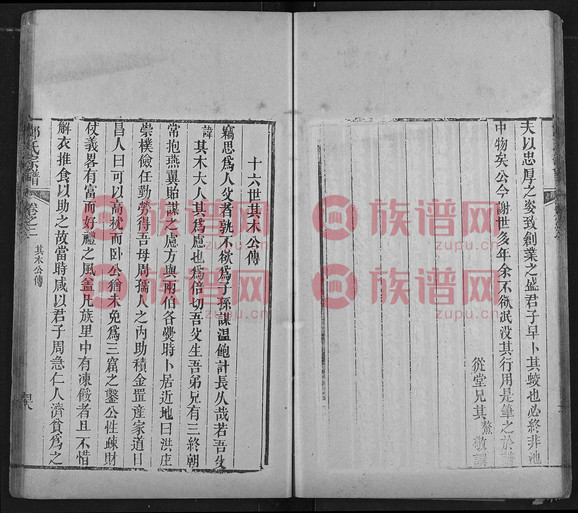 夫以忠厚之姿致創業之盛君子早卜其蛟也必終非池
中物矣公今謝世多年余不欲泯没其行用是筆之於譜
從堂兄其鰲敬譔
十六世其木公傳
竊思爲人父者孰不欲爲子孫謀温飽計長久哉若吾父
諱其木大人其爲慮也爲倍切吾父生吾弟兄有三終朝
常抱燕翼貽謀之慮方與兩伯各爨時卜居近地曰洪庄
崇樸儉任勤勞得吾母周孺人之内助積金置産家道日
昌人曰可以高枕而卧公猶未免爲三窟之鑿公性疎財
仗義畧有富而好禮之風盖凡族里中有凍餒者且不惜
解衣推食以助之故當時咸以君子周急仁人濟貧爲之
氏宗譜
卷之三
其木公傳
族谱网
zupu.cn
族谱网
zupu.cn
族谱网
zupu.cn
族谱网
zupu.cn